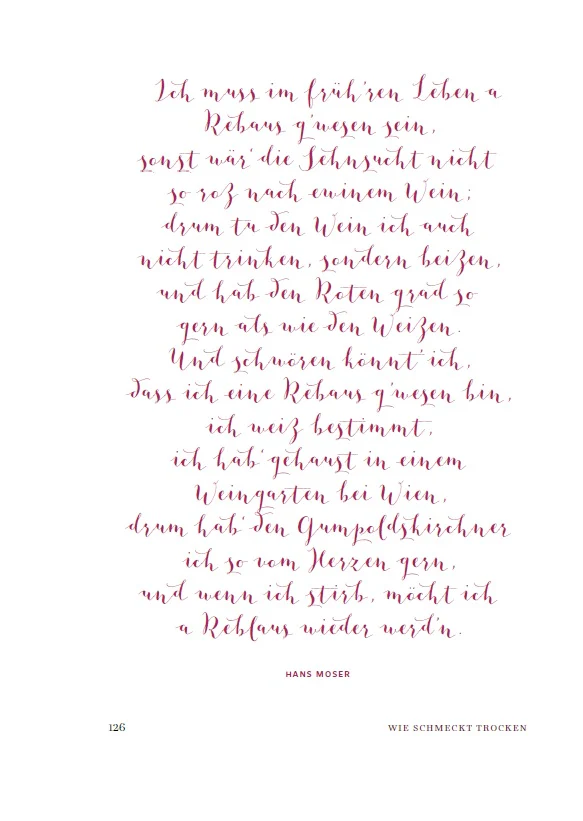 Ich muss im früh'ren Leben a
Rebaus g'wesen sein,
sonst wär' die Sehnsucht nicht
so roz nach ewinem Wein;
drum tu den Wein ich auch
nicht trinken, sondern beizen,
und hab den Roten grad so
gern als wie den Weizen.
Und schwören könnt' ich,
dass ich eine Rebaus g'wesen bin,
ich weiz bestimmt,
ich hab' gehaust in einem
Weingarten bei Wien,
drum hab' den Gumpoldskirchner
ich so vom Herzen gern,
und wenn ich stirb, möcht ich
a Reblaus wieder werd'n.
HANS MOSER
126
WIE SCHMECKT TROCKEN